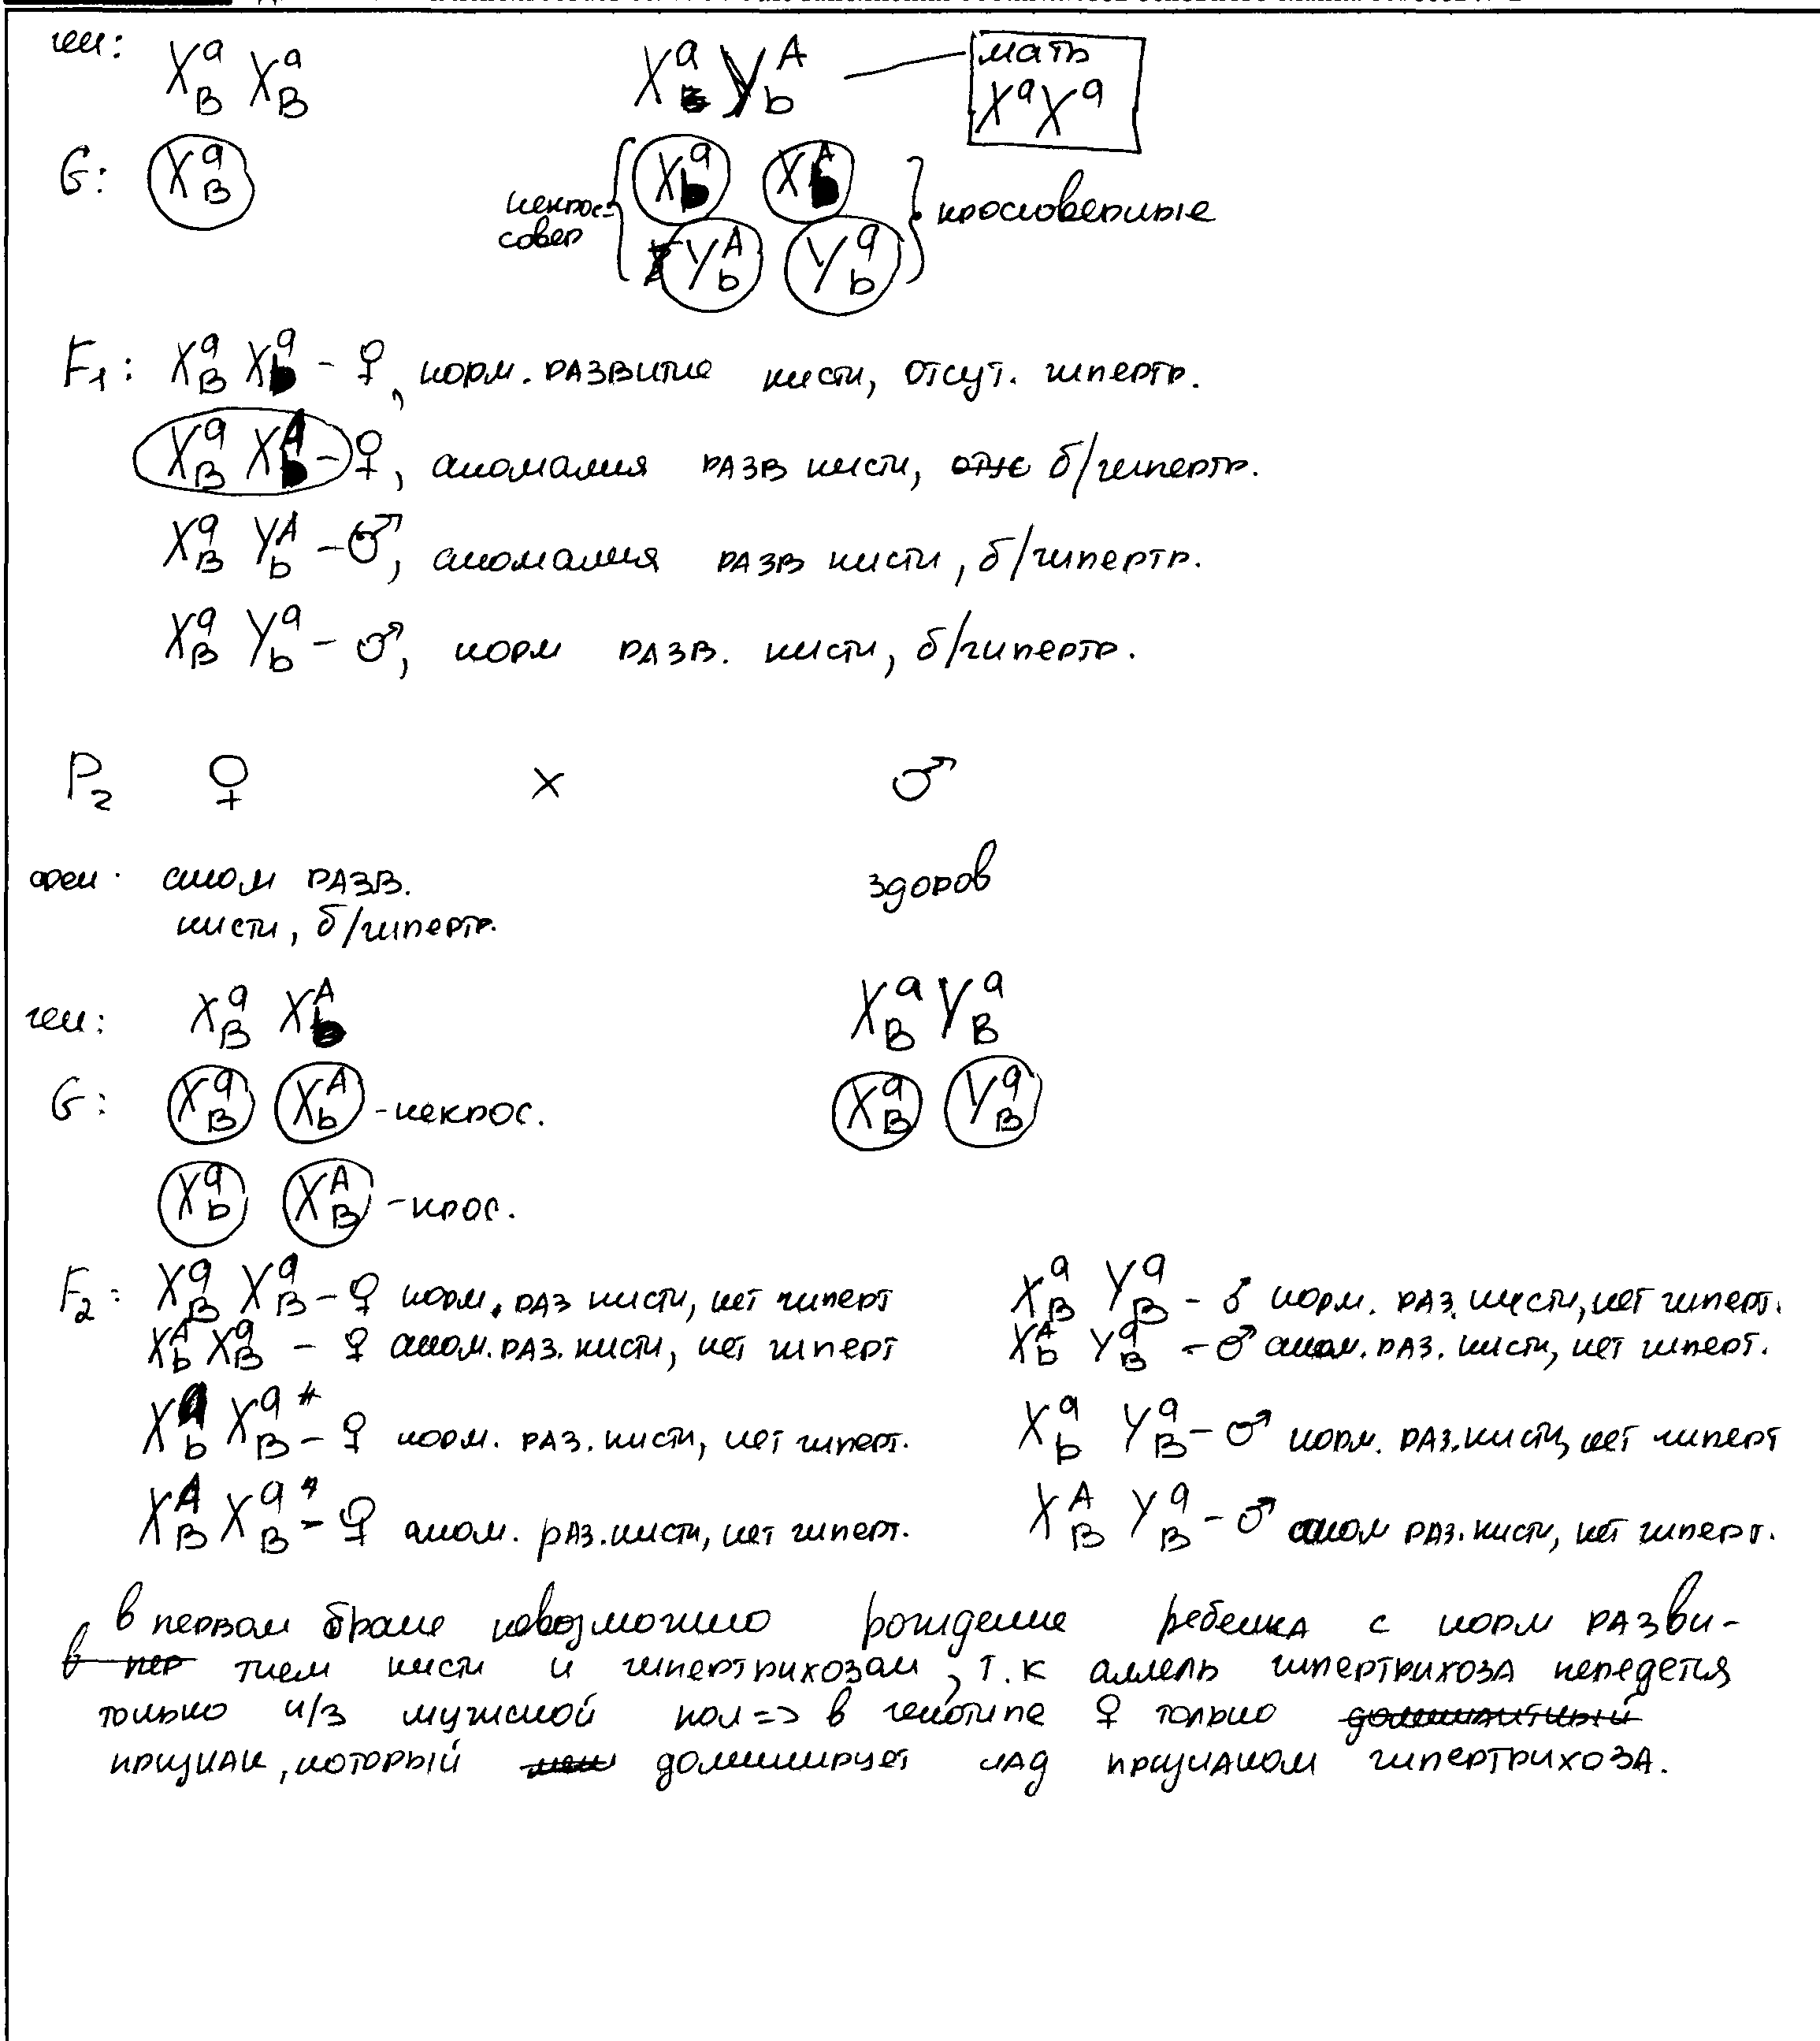 ген: X^a_B X^a_B X^a_b Y^A_b мать
X^a X^a
G: X^a_B некрос- совер X^a_b X^A_b кроссоверные
Y^A_b Y^a_b
F1: X^a_B X^a_b - ♀, норм. развитие кисти, отсут. гипертр.
X^a_B X^A_b - ♀, аномалия разв кисти, б/гипертр.
X^a_B Y^A_b - ♂, аномалия разв кисти, б/гипертр.
X^a_B Y^a_b - ♂, норм разв. кисти, б/гипертр.
P2 ♀ x ♂
фен. аном разв. здоров
кисти, б/гипертр.
ген: X^a_B X^A_b X^a_B Y^a_B
G: X^a_B X^A_b - некрос. X^a_B Y^a_B
X^a_b X^A_B - крос.
F2: X^a_B X^a_B - ♀ норм. раз кисти, нет гиперт X^a_B Y^a_B - ♂ норм. раз. кисти, нет гиперт.
X^A_b X^a_B - ♀ аном. раз. кисти, нет гиперт X^A_b Y^a_B - ♂ аном. раз. кисти, нет гиперт.
X^a_b X^a_B - ♀ норм. раз. кисти, нет гиперт. X^a_b Y^a_B - ♂ норм. раз. кисти, нет гиперт
X^A_B X^a_B - ♀ аном. раз. кисти, нет гиперт. X^A_B Y^a_B - ♂ аном раз. кисти, нет гиперт.
в первом браке невозможно рождение ребенка с норм разви-
в пер тием кисти и гипертрихозом, т.к аллель гипертрихоза
только ч/з мужской пол => в генотипе ♀ только доминантный
признак, который доминирует над признаком гипертрихоза.